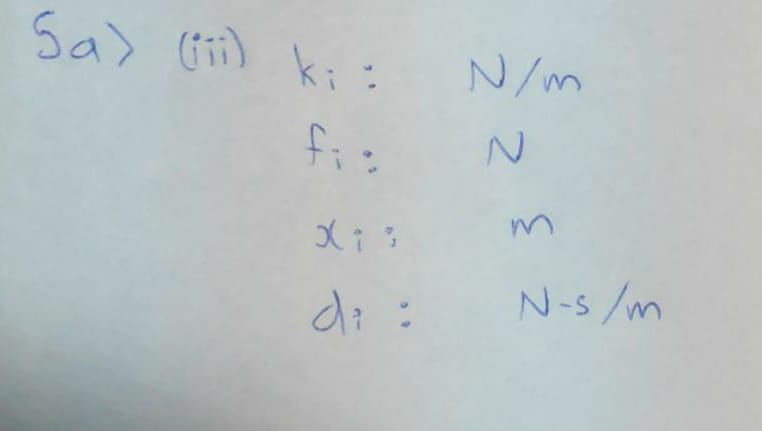 5a> (iii) ki : N/m
fi : N
xi : m
di : N-s/m